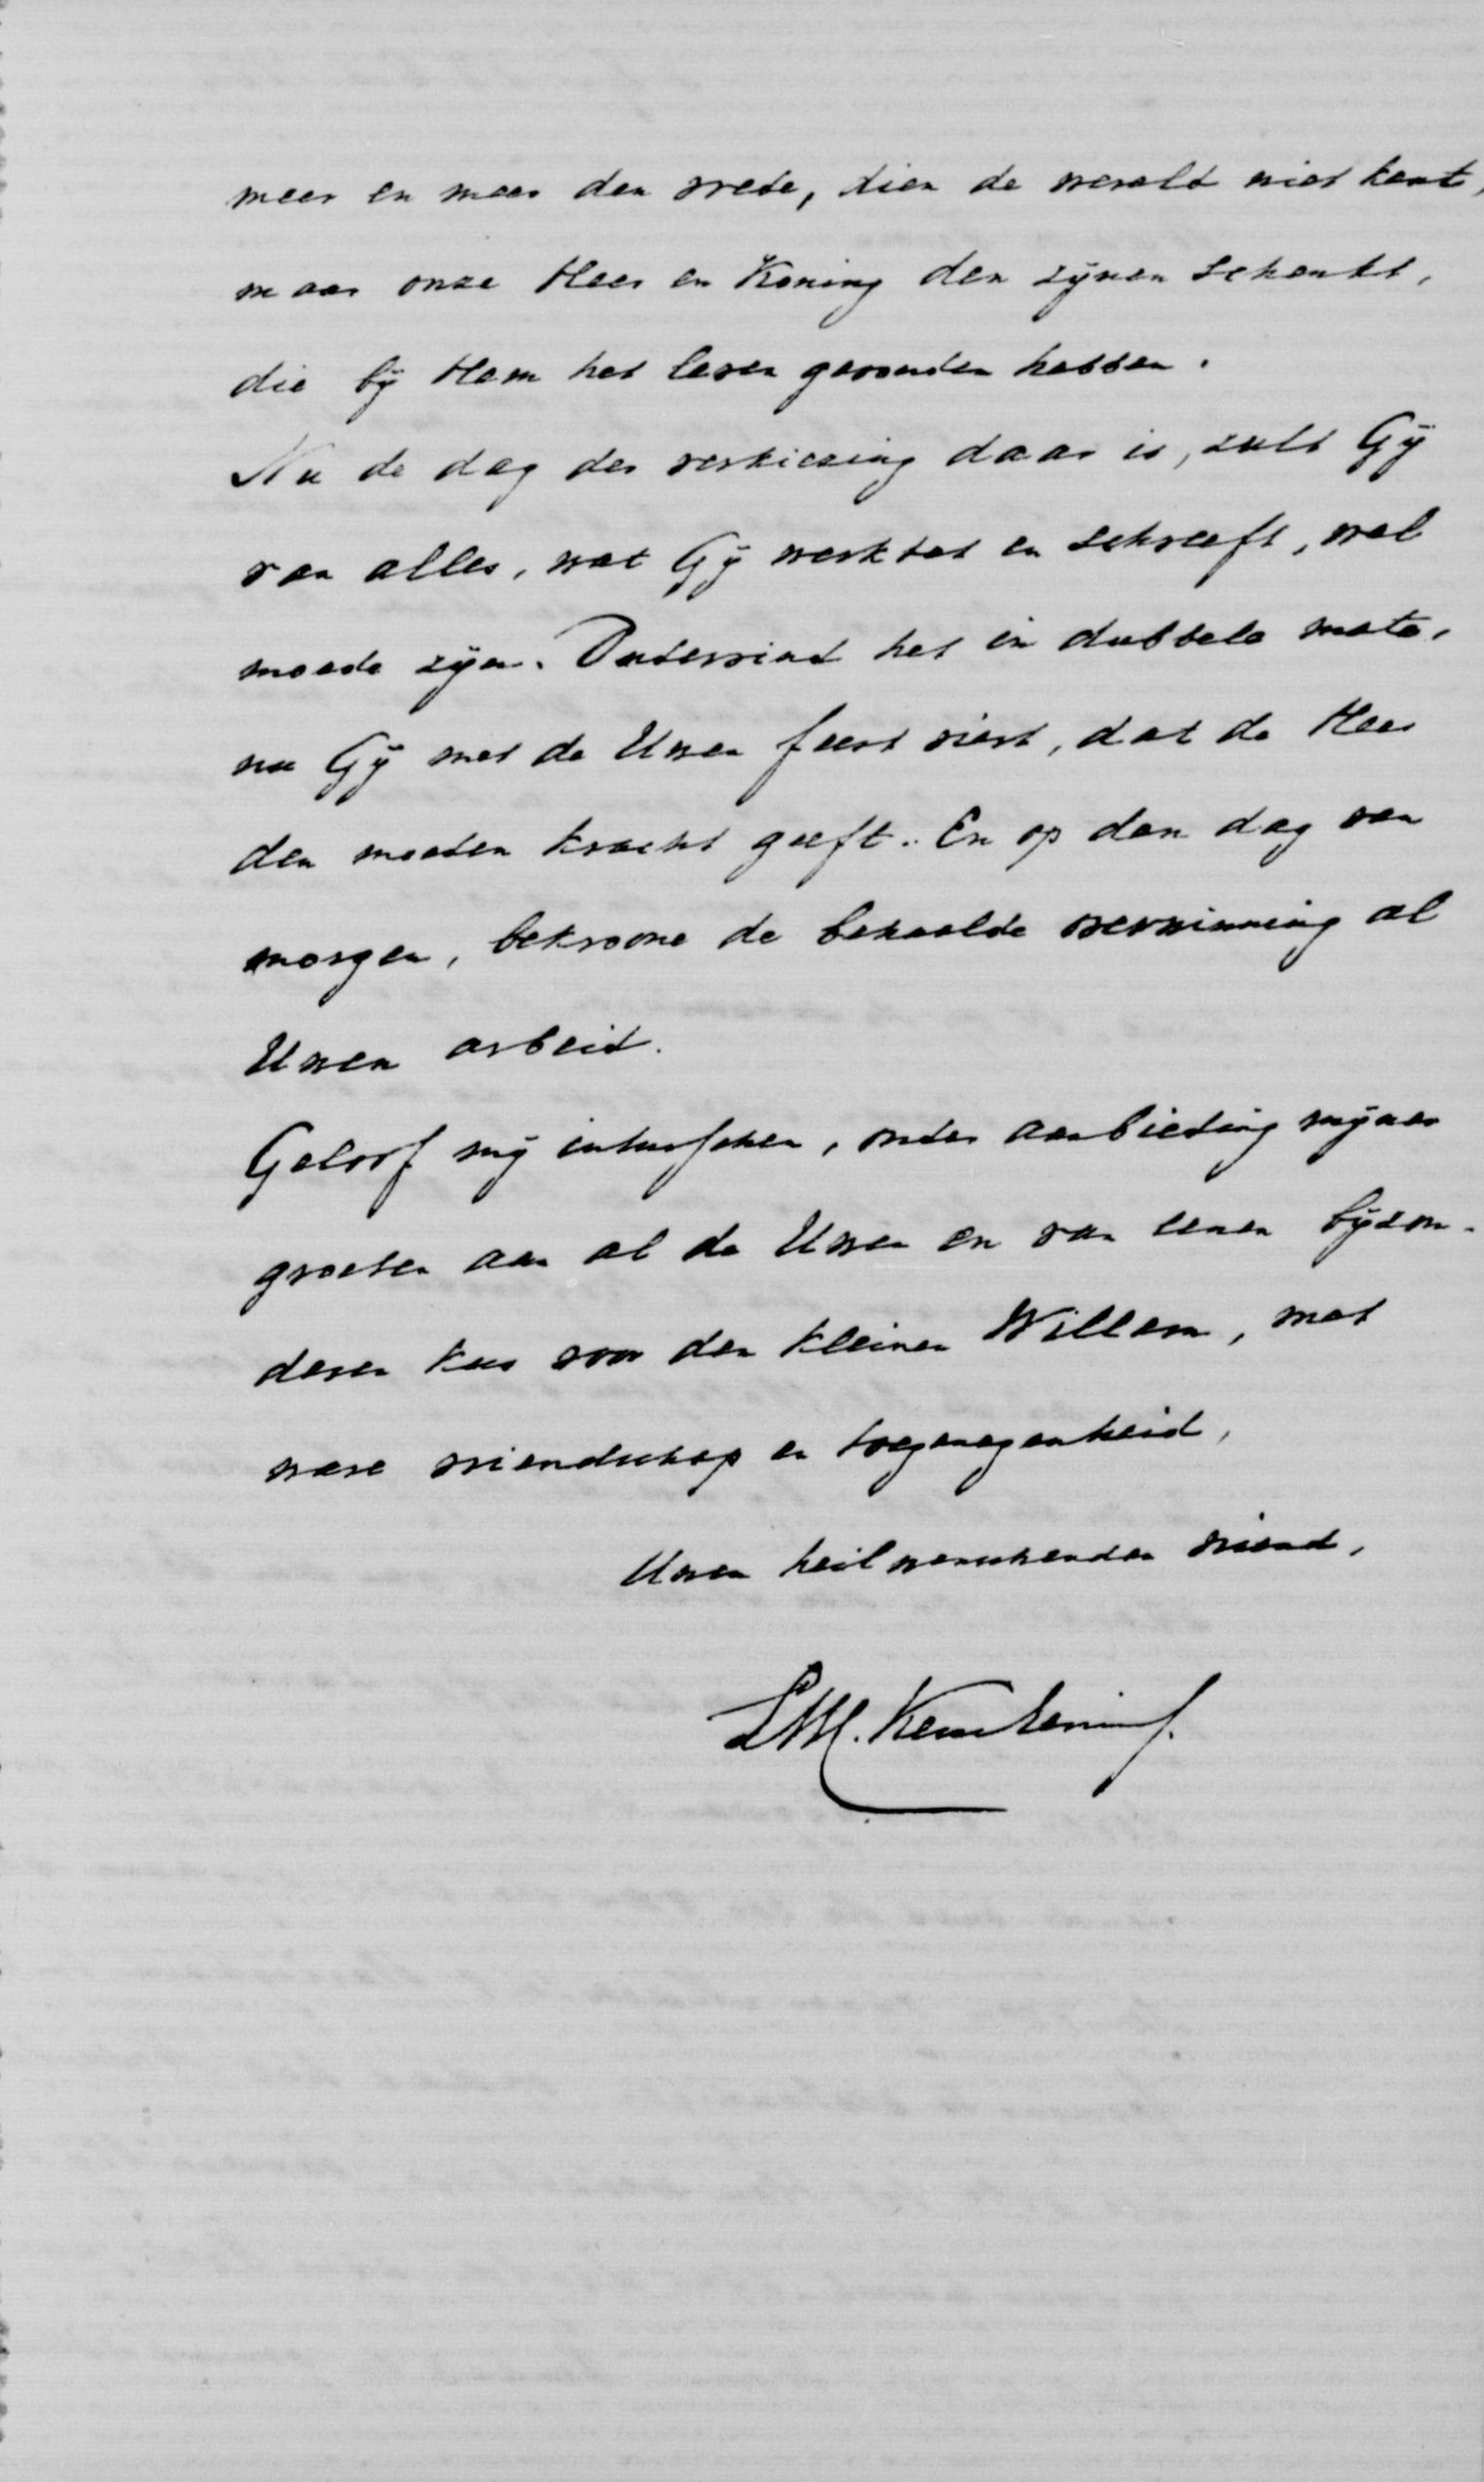 meer en meer den vrede, dien de wereld niet kent,
maar onze Heer en Koning den zijnen schenkt,
die bij Hem het leven gevonden hebben.
Nu de dag der verkiezing daar is, zult Gij
van alles, wat Gij werktet en schreeft, wel
moede zijn. Ondervind het in dubbele mate,
nu Gij met de Uwen feest viert, dat de Heer
den moeden kracht geeft. En op den dag van
morgen, bekroone de behaalde overwinning al
Uwen arbeid.
Geloof mij intusschen, onder aanbieding mijner
groeten aan al de Uwen en van eenen bijzon-
deren kus voor den kleinen Willem, met
ware vriendschap en toegenegenheid,
Uwen heilwenschenden vriend,
L.W.C. Keuchenius.